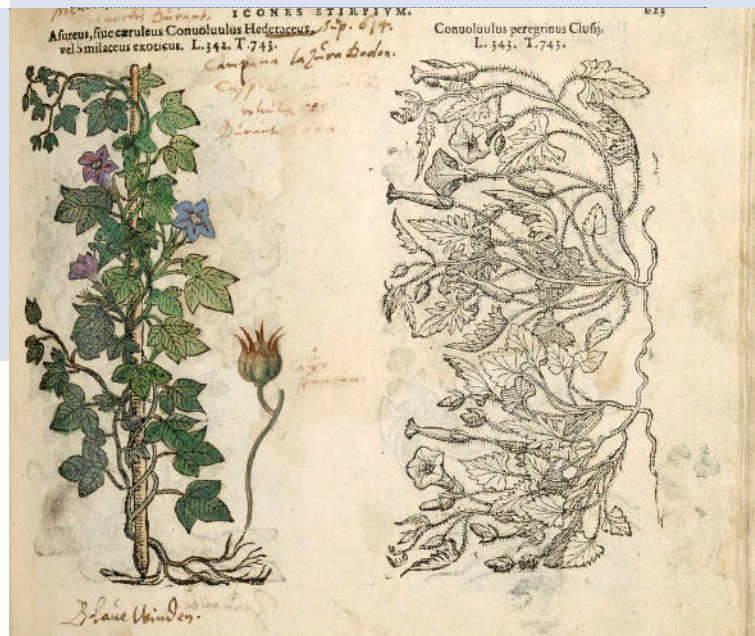 Durant.
ICONES STIRPIVM.
613
Asureus, siue cæruleus Conuoluulus Hederaceus,
vel Smilaceus exoticus. L.342. T.743.
Sup. 614.
Campana Lazura Dodon.
Durant.
Conuoluulus peregrinus Clusij.
L. 343. T.743.
Blaue Winden.